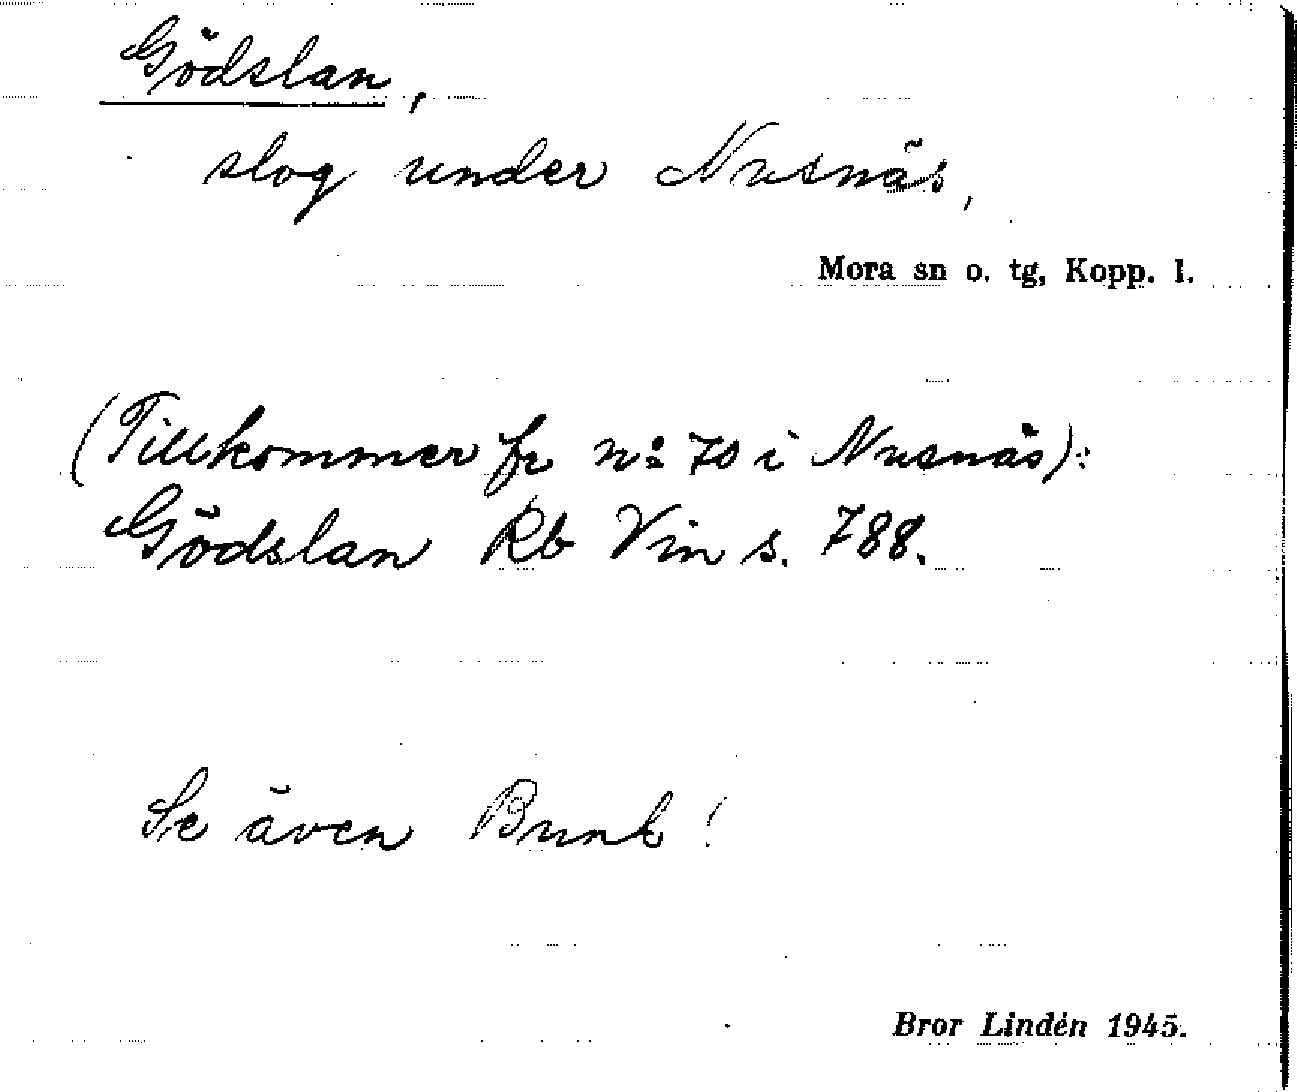 Gödslan,
slog under Nusnäs,
Mora sn o. tg, Kopp. l.
(Tillkommer fr no 70 i Nusnäs):
Gödslan Rb Vin s. 788.
Se även Bunk!
Bror Lindén 1945.